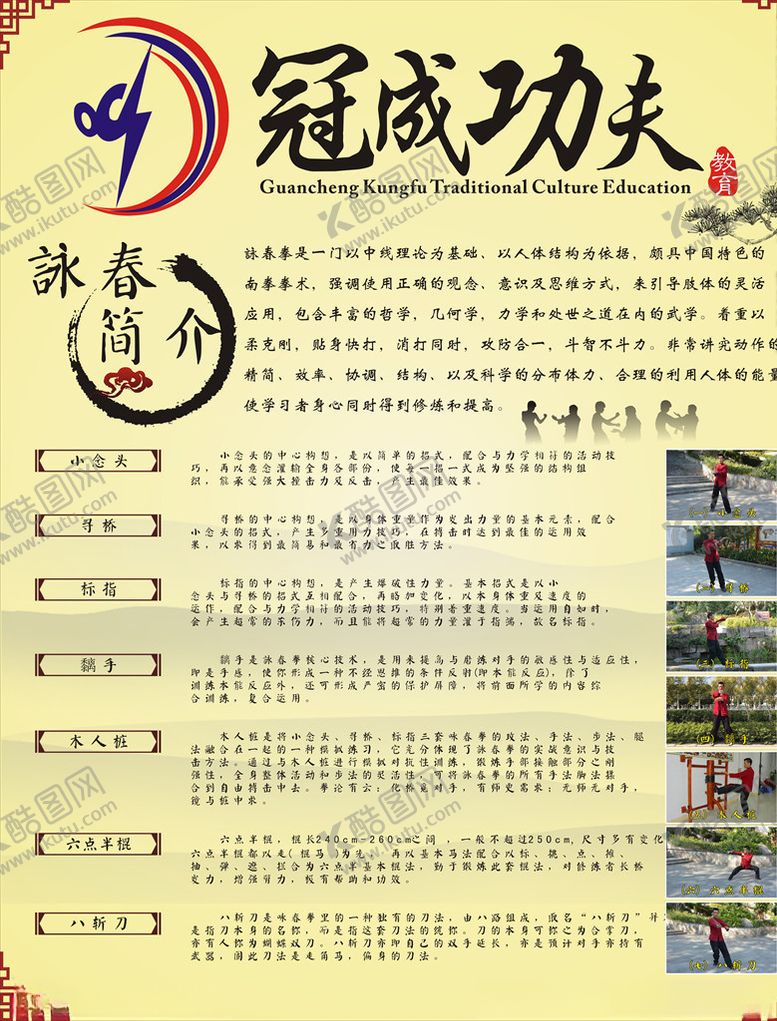 冠成功夫
Guancheng Kungfu Traditional Culture Education
教育
詠春
简介
詠春拳是一门以中线理论为基础、以人体结构为依据，颇具中国特色的
南拳拳术，强调使用正确的观念、意识及思维方式，来引导肢体的灵活
应用，包含丰富的哲学，几何学，力学和处世之道在内的武学。着重以
柔克刚，贴身快打，消打同时，攻防合一，斗智不斗力。非常讲究动作的
精简、效率、协调、结构、以及科学的分布体力、合理的利用人体的能量
使学习者身心同时得到修炼和提高。
小念头
小念头的中心构想，是以简单的招式，配合与力学相符的活动技
巧，再以意念灌输全身各部份，使每一招一式成为坚强的结构组
织，能承受强大撞击力及反击，产生最佳效果。
寻桥
寻桥的中心构想，是以身体重量作为发出力量的基本元素，配合
小念头的招式，产生多重用力技巧，在搏击时达到最佳的运用效
果，以来得到最简易和最省力之取胜方法。
标指
标指的中心构想，是产生爆破性力量。基本招式是以小
念头与寻桥的招式互相配合，再略加变化，以本身体重及速度的
运作，配合与力学相符的活动技巧，特别着重速度。当运用自如时，
会产生超常的杀伤力，而且能将超常的力量灌于指端，故名标指。
黐手
黐手是詠春拳核心技术，是用来提高与磨练对手的敏感性与适应性，
即是手感，使你形成一种不经思维的条件反射(即本能反应)，除了
训练本能反应外，还可形成严密的保护屏障，将前面所学的内容综
合训练，复合运用。
木人桩
木人桩是将小念头、寻桥、标指三套咏春拳的攻法、手法、步法、腿
法融合在一起的一种模拟练习，它充分体现了詠春拳的实战意识与技
击方法。通过与木人桩进行模拟对抗性训练，锻炼手部接触部分之刚
强性，全身整体活动和步法的灵活性，可将詠春拳的所有手法脚法揉
合到自由搏击中去。拳论有云：化桥觅对手，有师更需求；无师无对手，
镜与桩中求。
六点半棍
六点半棍，棍长240cm-260cm之间，一般不超过250cm,尺寸多有变化
六点半棍都以走(棍马)为先，再以基本马法配合以标、挑、点、摊、
抽、弹、遮、拦合为六点半基本棍法，勤于锻炼此套棍法，对修炼者长桥
发力，增强臂力，极有帮助和功效。
八斩刀
八斩刀是咏春拳里的一种独有的刀法，由八路组成，取名“八斩刀”并
是指刀本身的名称，而是指这套刀法的统称。刀的本身可称之为合掌刀，
亦有人称为蝴蝶双刀。八斩刀亦即自己的双手延长，亦是预计对手亦持有
武器，因此刀法是走角马，偏身的刀法。
(一)小念头
(二)寻桥
(三)标指
(四)黐手
(五)木人桩
(六)六点半棍
(七)八斩刀
酷图网
www.ikutu.com